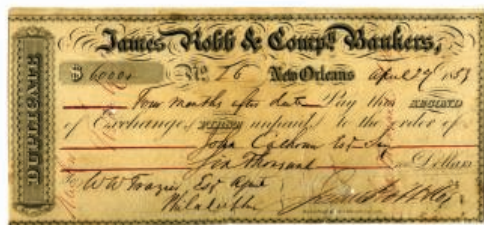 James Robb & Compy. Bankers,
$ 6000 No. 26 New Orleans April 29 1853
Four months after date Pay this SECOND
of Exchange, FIRST unpaid to the order of
John Calhoun Esq
Six Thousand Dollars
To W W Frazier, Esq
Philadelphia James Robb & Co
DUPLICATE